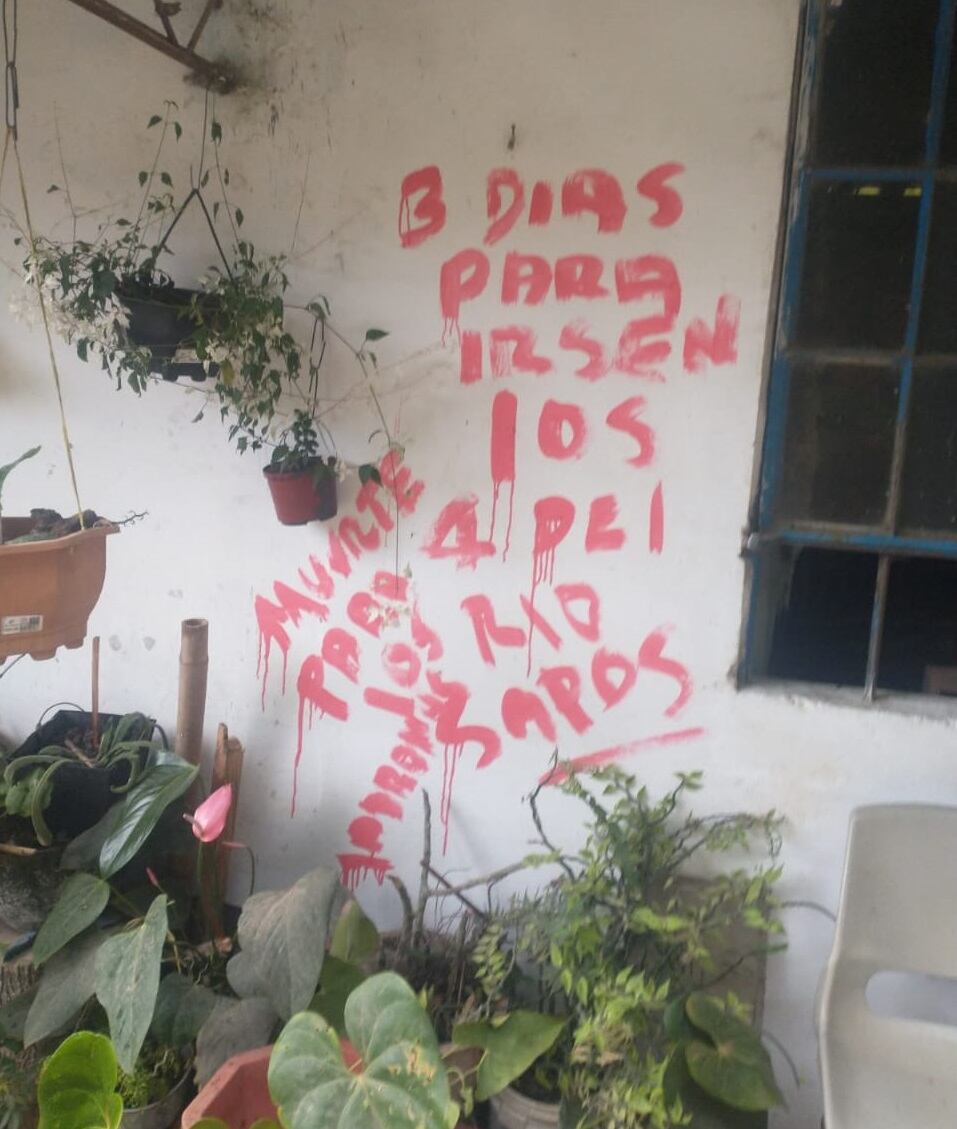 3 DIAS
PARA
IRSEN
lOS
4 DEl
RIO
SAPOS
MUERTE
PARA
lOS